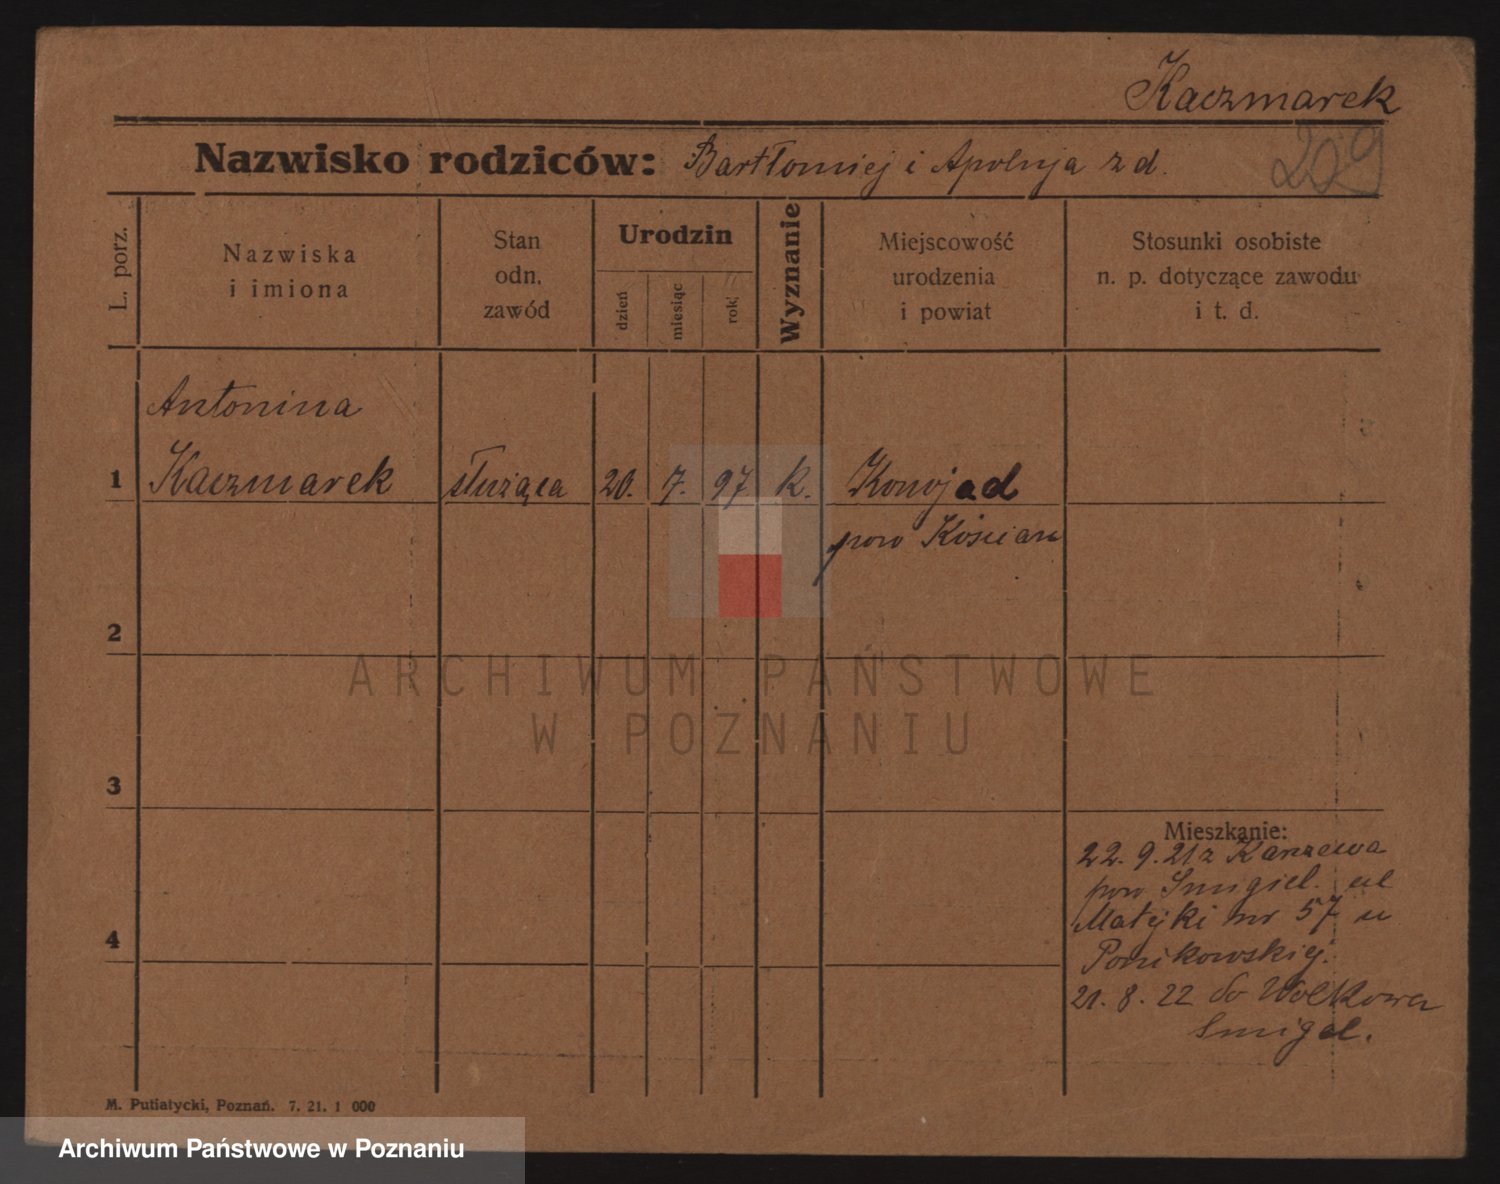 Kaczmarek
Nazwisko rodziców: Bartłomiej i Apolnja z d.
229
L. porz.
Nazwiska
i imiona
Stan
odn.
zawód
Urodzin
dzień
miesiąc
rok
Wyznanie
Miejscowość
urodzenia
i powiat
Stosunki osobiste
n. p. dotyczące zawodu
i t. d.
Antonina
1 Kaczmarek służąca 20. 7. 97 k. Konojad
pow Kościan
2
ARCHIWUM PAŃSTWOWE
W POZNANIU
3
Mieszkanie:
22. 9. 21 z
pow Smigiel. ul
4 Matejki nr 57 u
Ponikowskiej.
21. 8. 22 do Wolkowa
Smigel.
M. Putiatycki, Poznań. 7. 21. 1 000
Archiwum Państwowe w Poznaniu